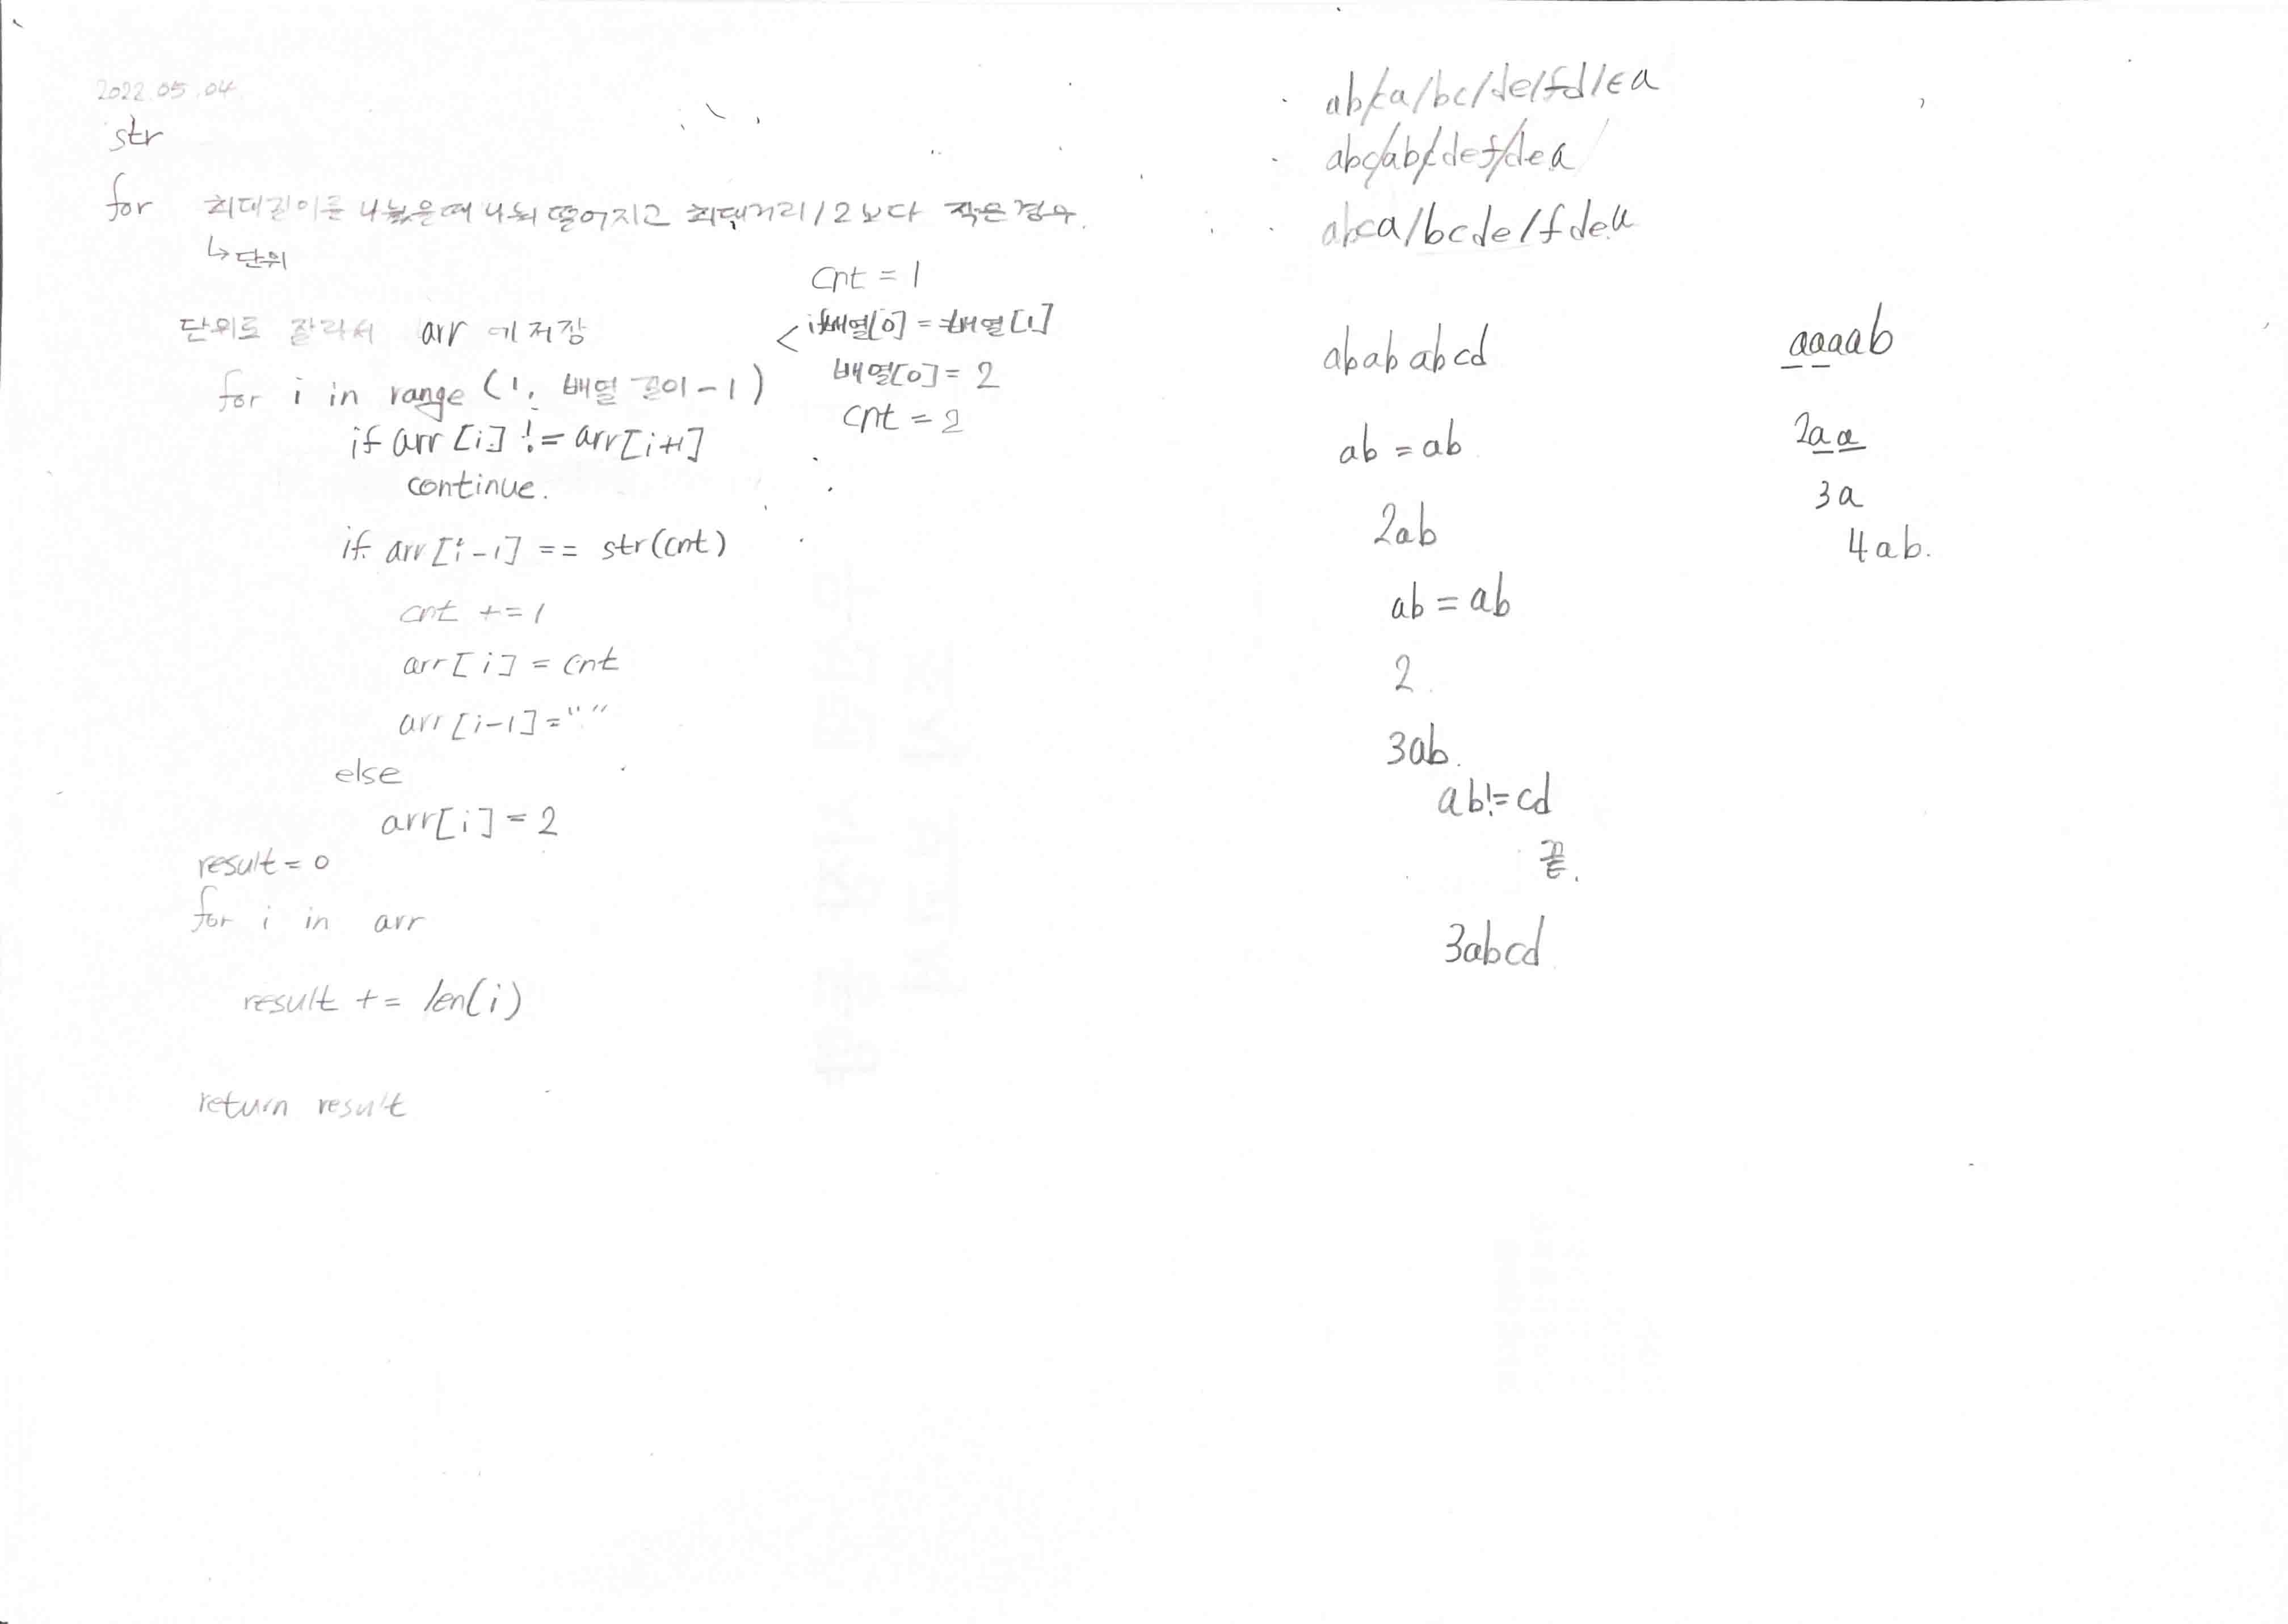 2022.05.04
str
for 최대길이를 나눴을때 나눠 떨어지고 최대거리/2보다 작은경우.
↳ 단위
단위로 잘라서 arr 에 저장
for i in range (1, 배열 길이-1)
if arr[i] != arr[i+1]
continue.
if arr[i-1] == str(cnt)
cnt += 1
arr[i] = cnt
arr[i-1] = ""
else
arr[i] = 2
result = 0
for i in arr
result += len(i)
return result
cnt = 1
< if배열[0] = 배열[1]
배열[0] = 2
cnt = 2
ab/ca/bc/de/fd/ea
abc/abc/def/dea
abca/bcde/fdea
abababcd
ab = ab
2ab
ab = ab
2
3ab.
ab != cd
끝.
3abcd
aaaab
2aa
3a
4ab.